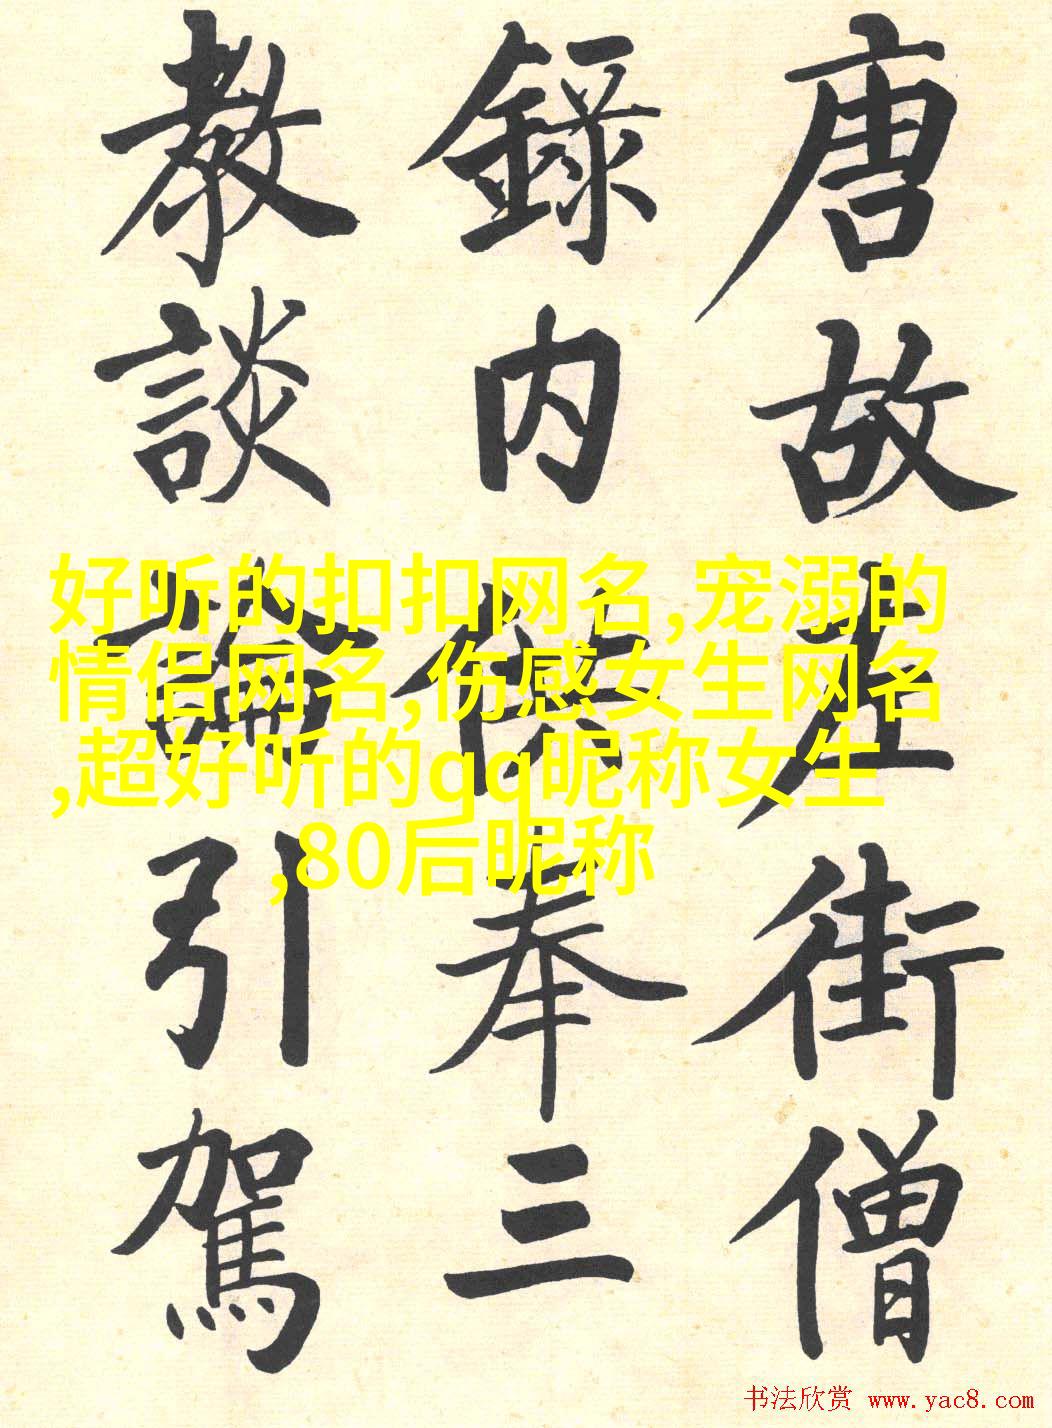 唐故左街僧
錄内供奉三
教談論引駕
好听的扣扣网名,宠溺的
情侣网名,伤感女生网名
,超好听的qq昵称女生
,80后昵称
书法欣赏 www.yac8.com